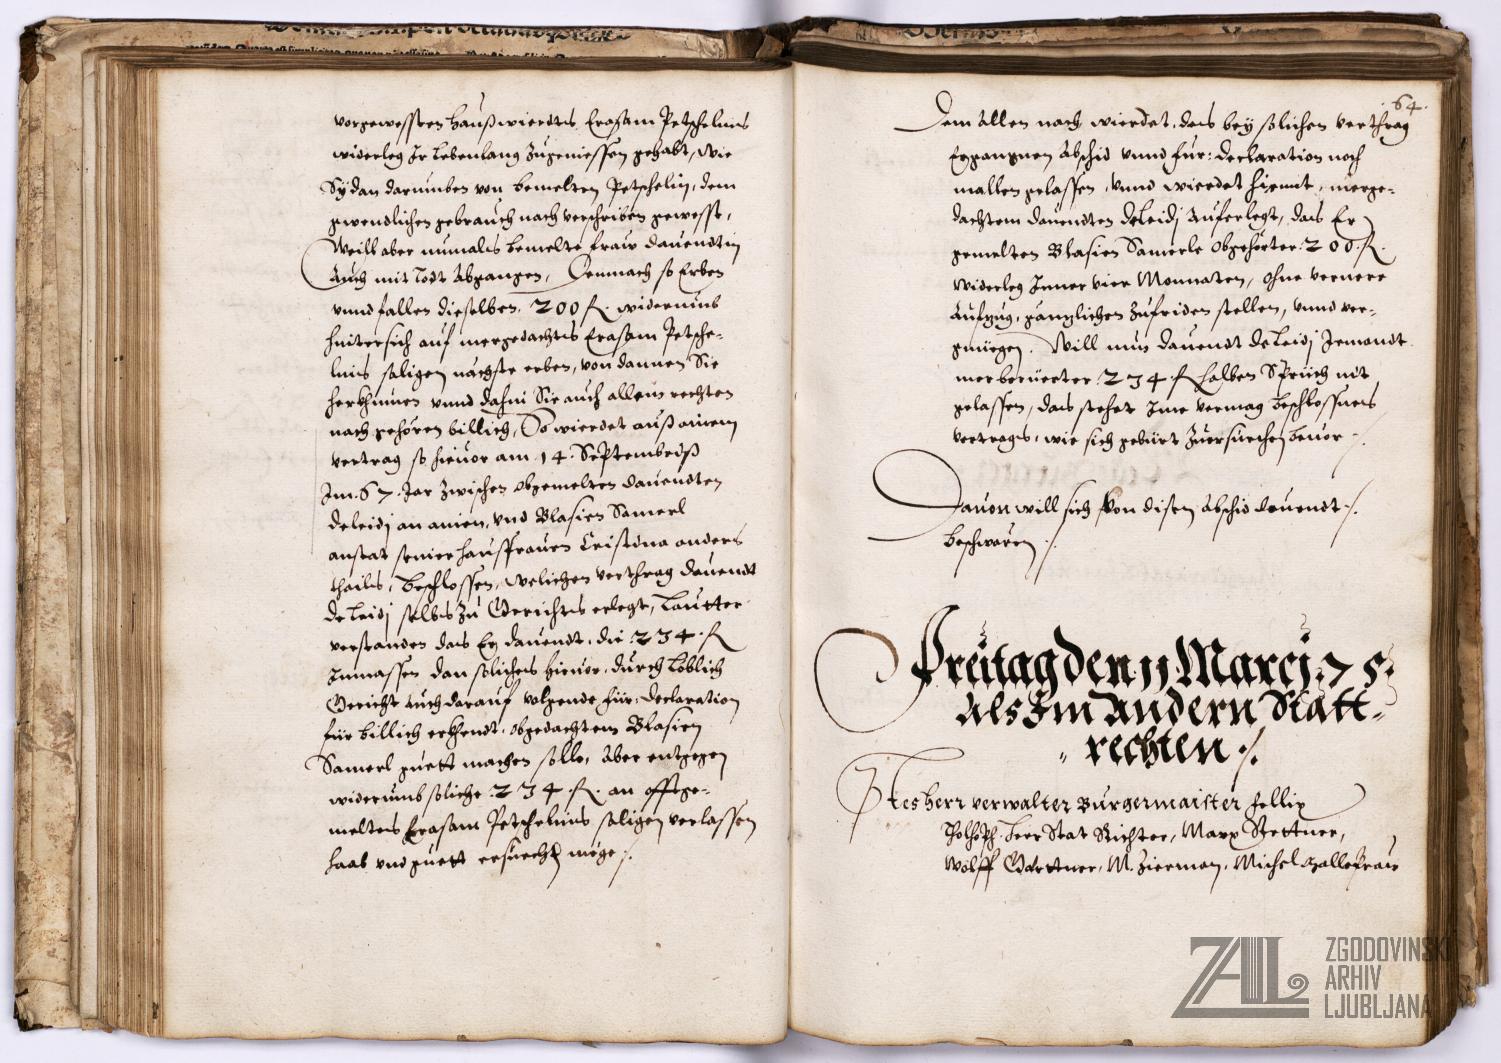 vorgewessten haußwierdts Erasam Petschelins
widerleg Ir lebenlang zugeniessen gehabt, wie
Sÿ dan darumben von bemelten Petschelin, dem
gwendlichen gebrauch nach verschriben gewesst,
Weill aber numals bemelte fraw Dauendtin
Auch mit todt abgangen, Demnach so Erben
vnnd fallen dieselben 200 fl. widerumb
hintersich auf mergedachts Erasam Petsche-
lins saligen nachste erben, von dannen Sie
herkhumen vnnd dahin Sie auch allem rechten
nach gehören billich, So wierdet auß ainem
vertrag so hieuor am 14. Septembris
Im. 67. Jar zwischen obgemelten Dauendten
deleidj an ainem, vnd Blasien Samerl
anstat seiner hausfrauen Cristina anders
thails, beschlossen, welichen verthrag Dauendt
deleidj selbs zu Gerichts erlegt, lautter
verstanden das Er Dauendt, die 234. fl
Inmassen dan solliches hieuor, durch loblich
Gericht auch darauf volgende für: declaration
für billich erkhendt, obgedachtem Blasien
Samerl guett machen solle, Aber entgegen
widerumb soliche 234. fl. an offtge-
meltes Erasam Petschelins saligen verlassen
haab vnd guett ersuechen möge ./.
64.
Dem Allen nach wierdet, das beÿ solichen verthrag
Ergangnen Abschid vnnd für: declaration noch
mallen gelassen, vnnd wierdet hiemit, merge-
dachtem Dauendten deleidj Auferlegt, das Er
gemelten Blasien Samerle obgehörter 200. fl.
widerleg Inner vier Monnaten, ohne vernere
Aufzug, gänzlichen zufriden stellen, vnnd ver-
gnüegen. Will nun Dauendt deleidj Jemandt
merberüerter 234. fl halben Sprüch nit
gelassen, das stehet Ime vermag beschlossnes
vertrags, wie sich gebürt zuersuechen beuor ./.
Dauon will sich von disen abschid Dauendt ./.
beschwären ./.
Freitag den 11 Marcj. 75.
Als Im Andern Statt-
rechten ./.
Ites herr verwalter Burgermaister Fellix
herr Stat Richter, Marx Stettner,
Wolff Garttner, M. Zierman, Michel
ZAL ZGODOVINSKI
ARHIV
LJUBLJANA